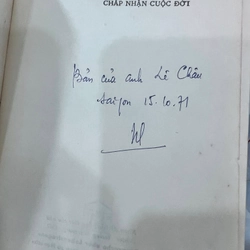 CHẤP NHẬN CUỘC ĐỜI
Bản của anh Lê Châu
Saigon 15.10.71